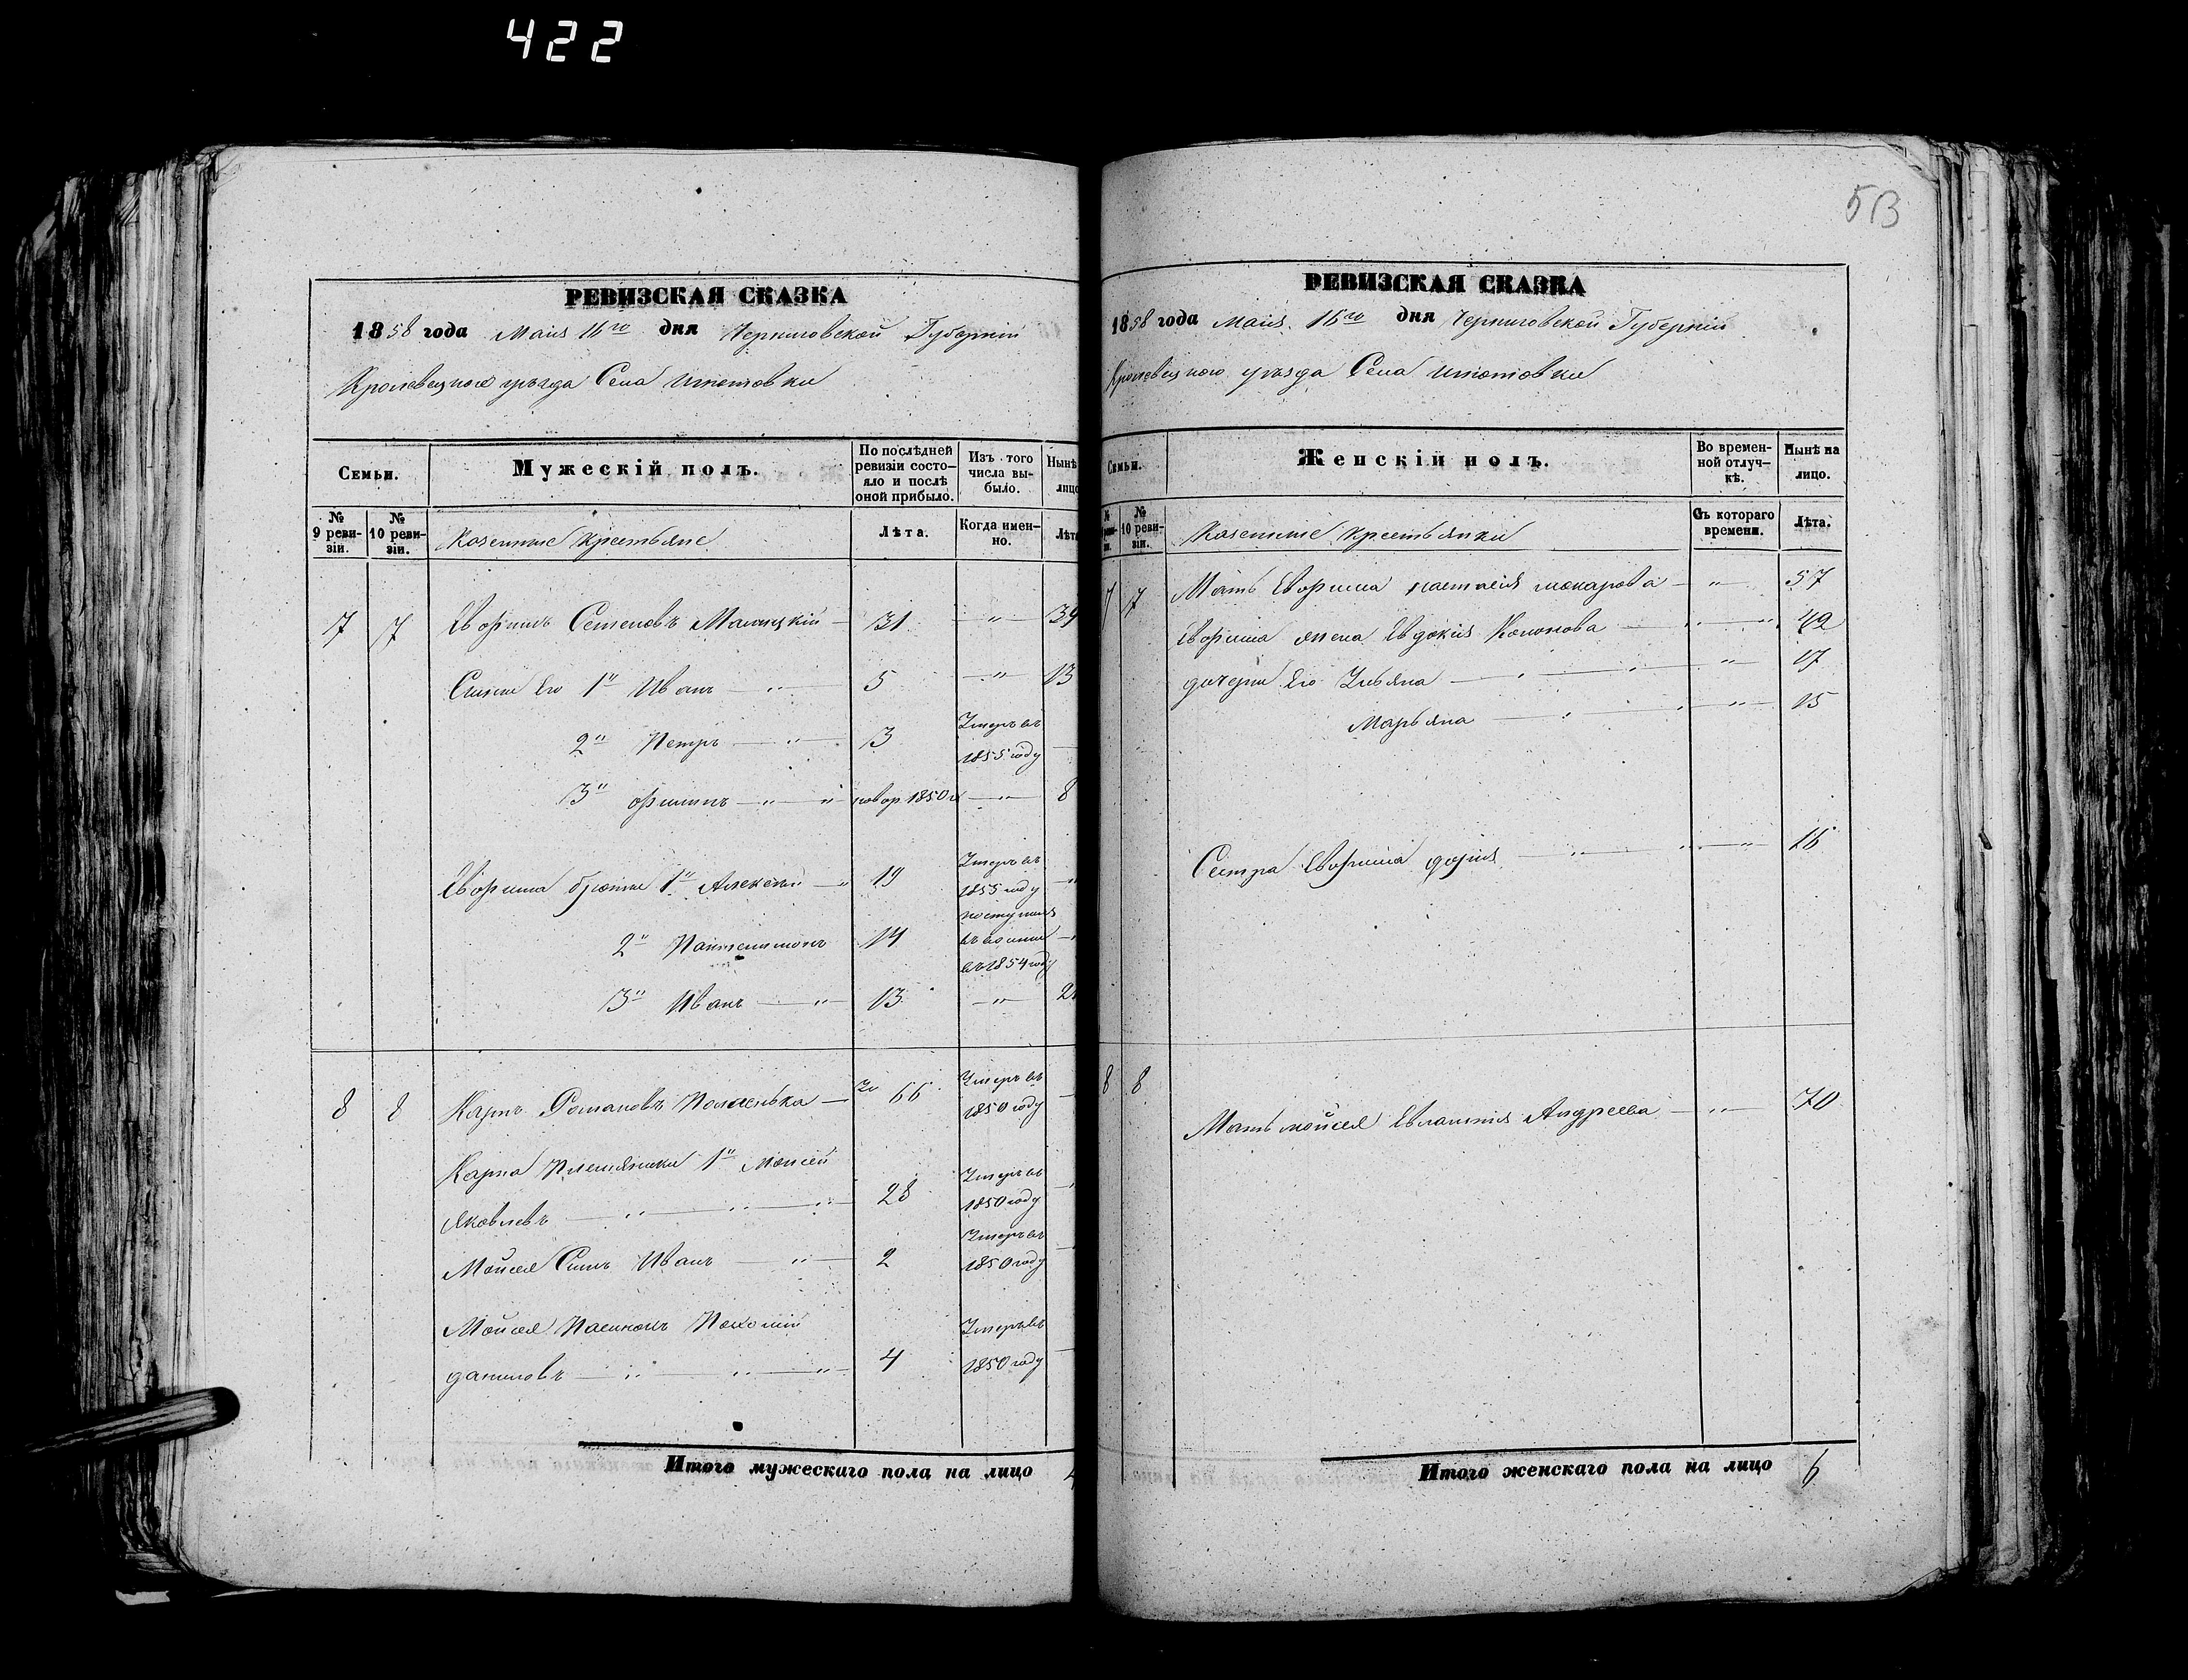 422
РЕВИЗСКАЯ СКАЗКА
1858 года Маія 16го дня Черниговской Губерніи
Кролевецкого уѣзда Села
Семьи.
Мужескій полъ.
По послѣдней ревизіи состо-
яло и послѣ
оной прибыло.
Изъ того
числа вы-
было.
Нынѣ
лицо
№
9 реви-
зіи.
№
10 реви-
зіи.
Казенные крестьяне
Лѣта.
Когда имен-
но.
Лѣта
7 7 Евфимъ Семеновъ 31 " 39
Сыны Его 1й Иванъ " 5 " 13
2й Петръ " 3 Умеръ въ
1855 году
3й Филипъ " " новор 1850 " 8
Евфима братья 1й Алексѣй " 19 Умеръ въ
1855 году
2й Пантелимонъ 14 поступилъ
въ
въ 1854 году
3й Иванъ " 13 " 2
8 8 Карпъ Романовъ 66 Умеръ въ
1850 году
Карпа Племянники 1й Моисей
Яковлевъ " " " 28 Умеръ въ
1850 году
Мойсея Сынъ Иванъ " 2 Умеръ въ
1850 году
Мойсея Пасинокъ Пахомій
Даниловъ " " " 4 Умеръ въ
1850 году
Итого мужескаго пола на лицо 4
513
РЕВИЗСКАЯ СКАЗКА
1858 года Маія 16го дня Черниговской Губерніи
Кролевецкого уѣзда Села
Семьи.
Женскій полъ.
Во времен-
ной отлуч-
кѣ.
Нынѣ на
лицо.
№
10 реви-
зіи.
Казенные Крестьянки
Съ котораго
времени.
Лѣта.
7 7 Мать Евфима Настасія Макарова " 57
Евфима жена Евдокія Кононова " 42
дочери Его Ульяна " 17
Марьяна " 15
Сестра Евфима " " 16
8 8 Мать мойсея Евлампія Андреева " 70
Итого женскаго пола на лицо 6